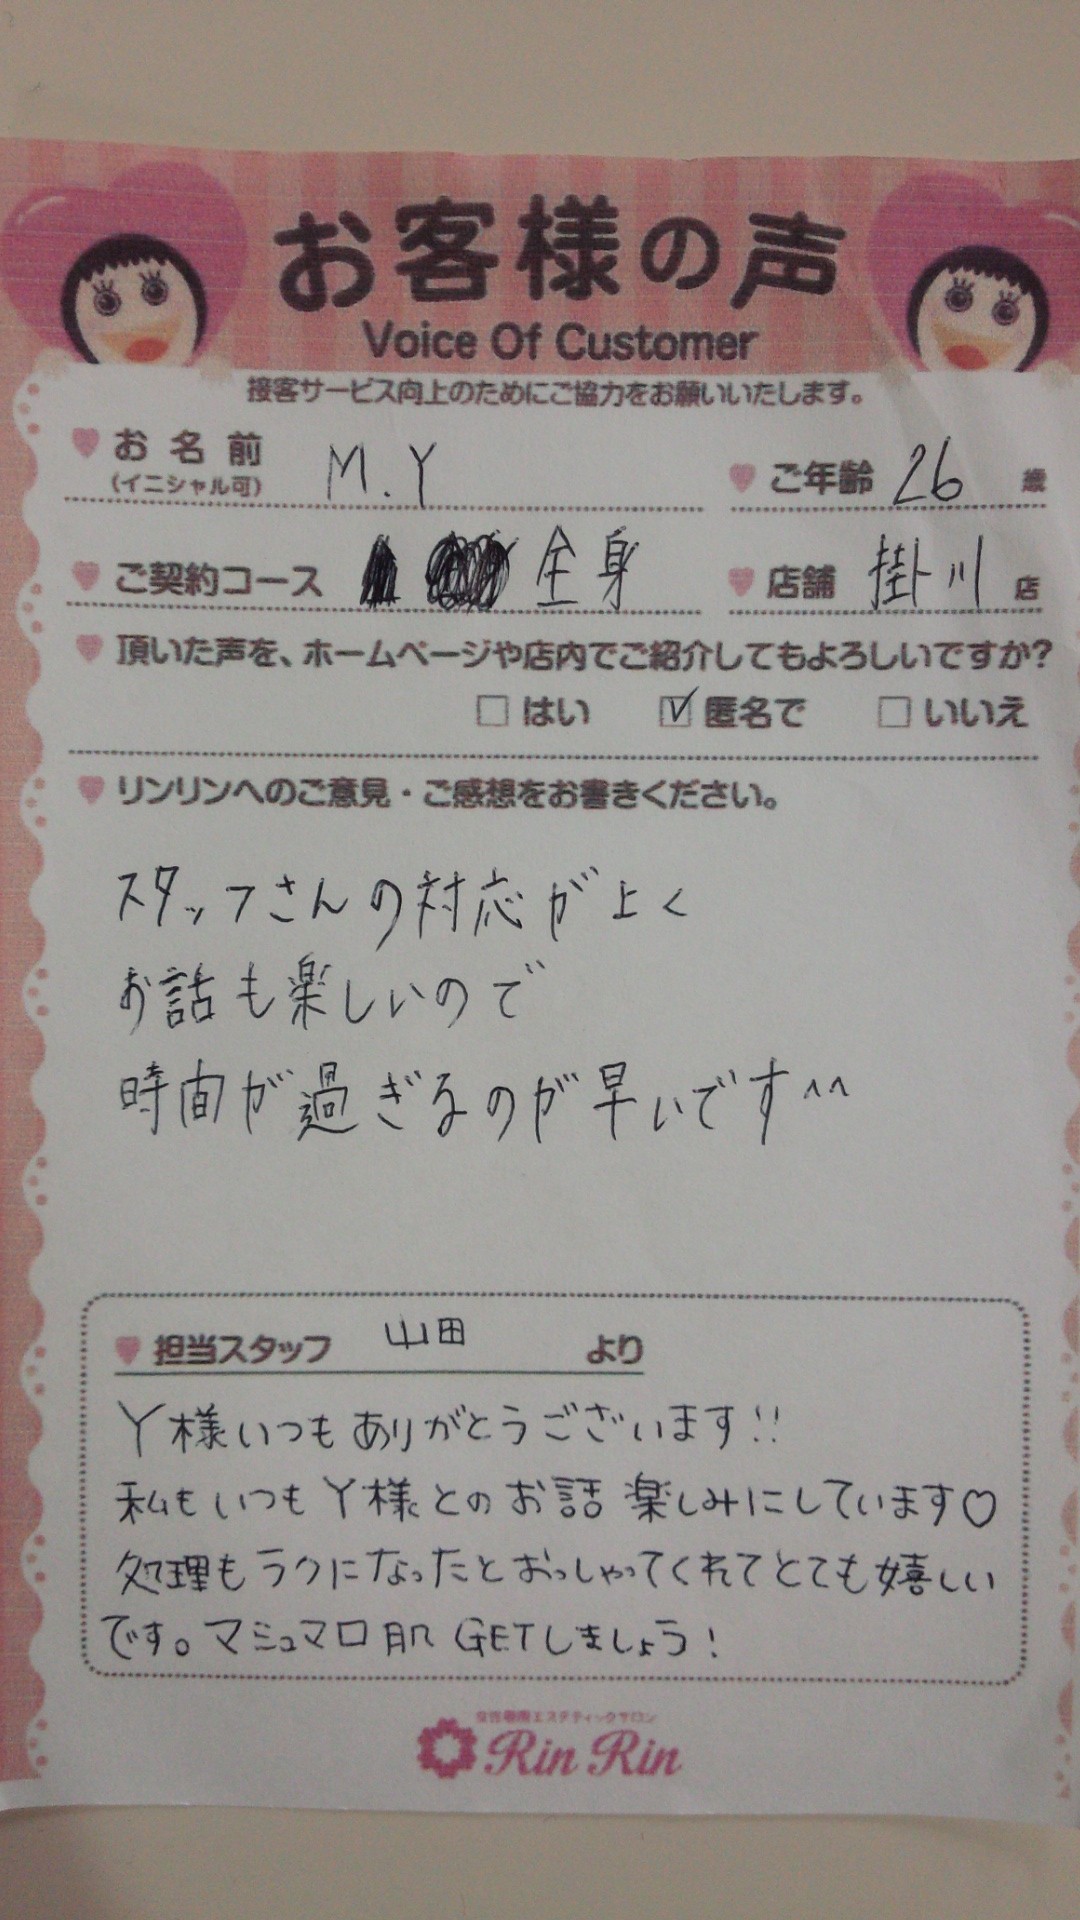 お客様の声
Voice Of Customer
接客サービス向上のためにご協力をお願いいたします。
お名前 M.Y ご年齢 26 歳
(イニシャル可)
ご契約コース 全身 店舗 掛川 店
頂いた声を、ホームページや店内でご紹介してもよろしいですか?
はい 匿名で いいえ
リンリンへのご意見・ご感想をお書きください。
スタッフさんの対応が よく
お話も楽しいので
時間が過ぎるのが早いです^^
担当スタッフ 山田 より
Y様いつもありがとうございます!!
私もいつもY様とのお話 楽しみにしています♡
処理もラクになったとおっしゃってくれてとても嬉しい
です。マシュマロ肌 GETしましょう!
女性専用エステティックサロン
Rin Rin